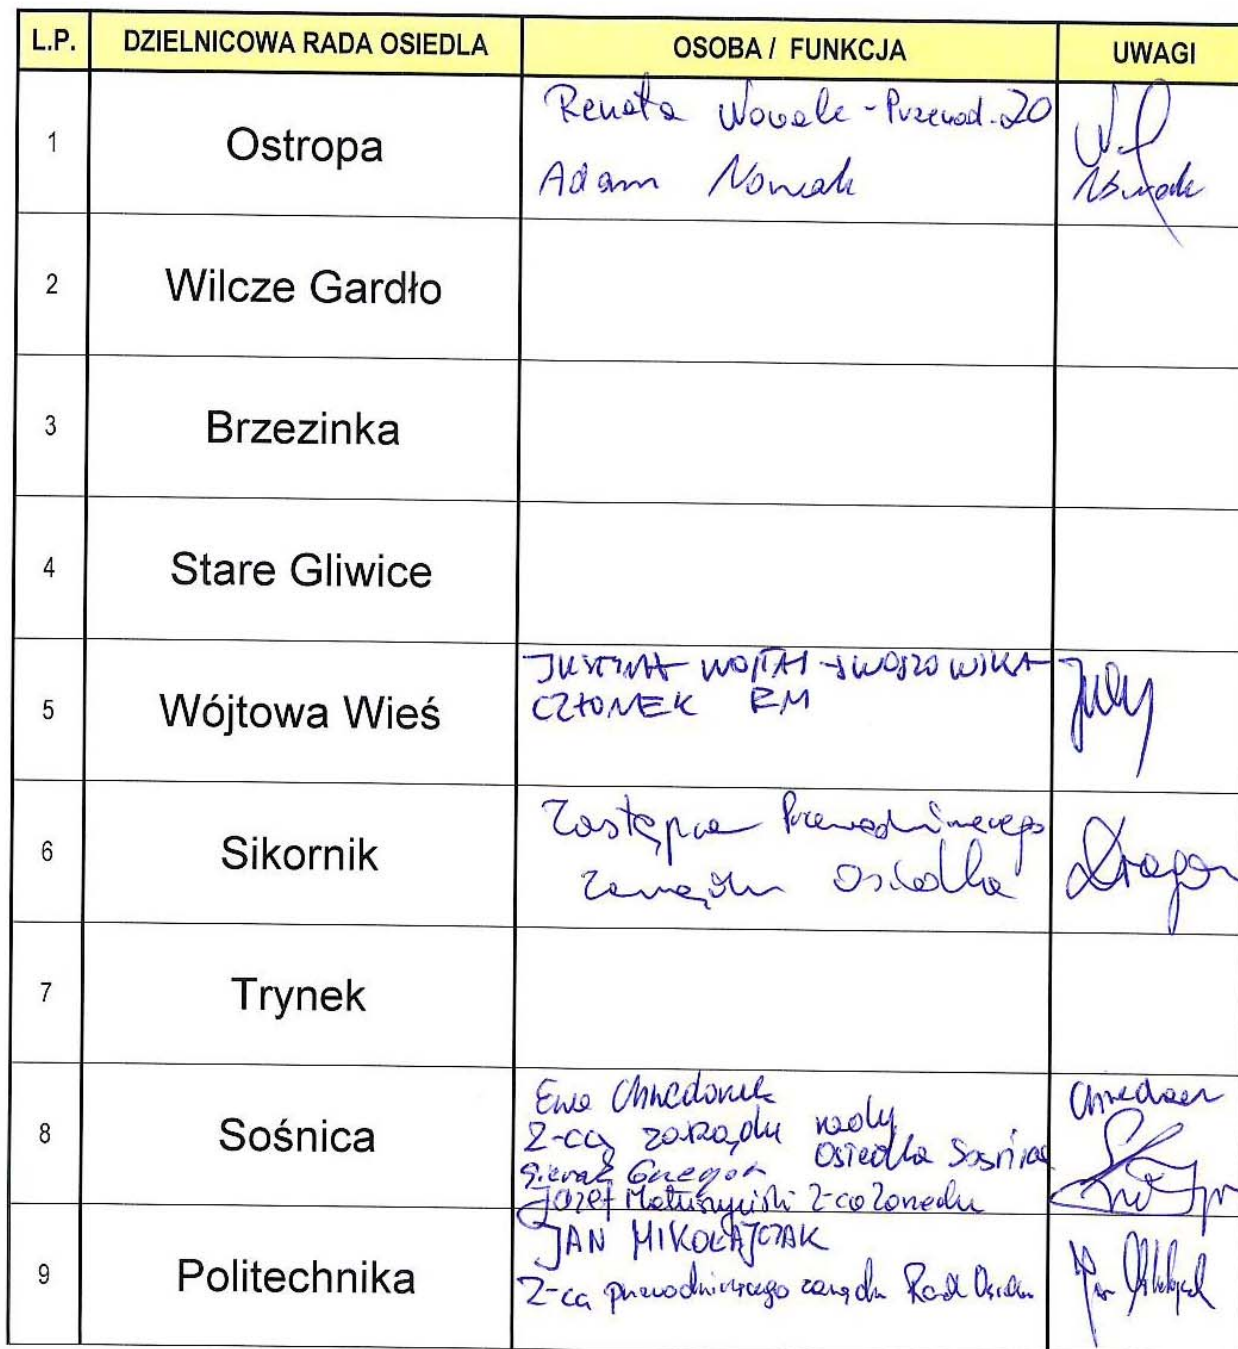 L.P. DZIELNICOWA RADA OSIEDLA OSOBA / FUNKCJA UWAGI
1 Ostropa
Renata Nowak - Przewod. ZO
Adam Nowak
Nowak
2 Wilcze Gardło
3 Brzezinka
4 Stare Gliwice
5 Wójtowa Wieś
JUSTYNA
CZŁONEK RM
6 Sikornik
Zastępca Przewodniczącego
Zarządu Osiedla
Dragon
7 Trynek
8 Sośnica
Ewa
Z-ca zarządu rady
Osiedla Sośnica
Sieraż Grzegorz
Józef Z-ca Zarządu
9 Politechnika
JAN MIKOŁAJCZAK
Z-ca przewodniczącego zarządu Rad Osiedla